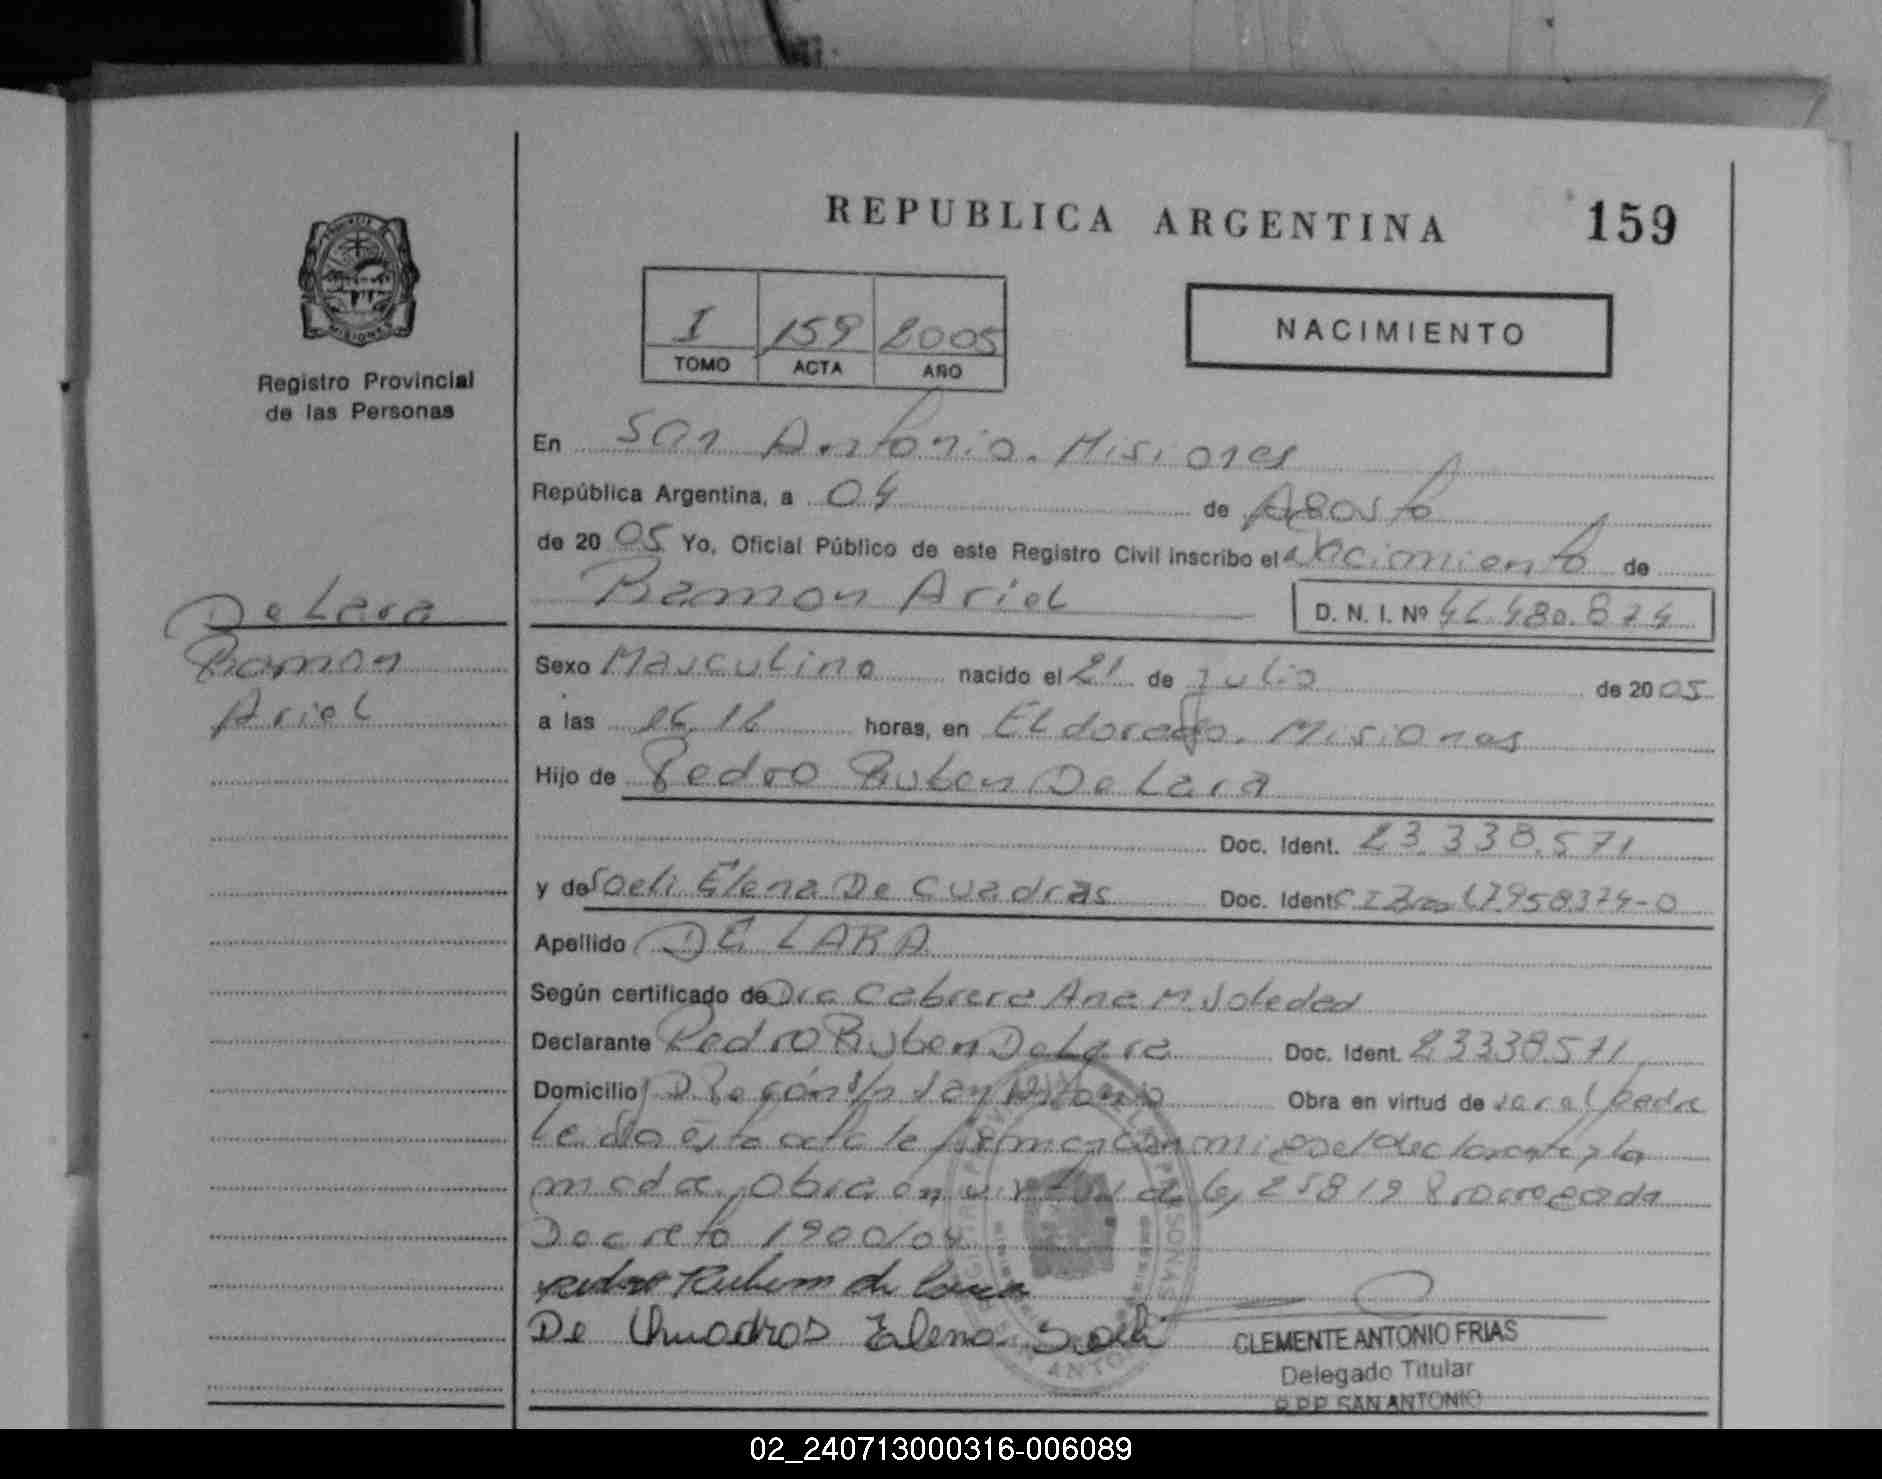 REPUBLICA ARGENTINA 159
I 159 2005
TOMO ACTA AÑO
NACIMIENTO
Registro Provincial
de las Personas
En San Antonio. Misiones
República Argentina, a 04 de Agosto
de 2005 Yo, Oficial Público de este Registro Civil inscribo el Nacimiento de
Ramon Ariel D. N. I. Nº 46.480.874
De Lara
Ramon
Ariel
Sexo Masculino nacido el 21 de Julio de 2005
a las 16.16 horas, en Eldorado. Misiones
Hijo de Pedro Ruben De Lara
Doc. Ident. 23.338.571
y de Soeli Elena De Cuadras Doc. Ident C I Bras 17958374-0
Apellido DE LARA
Según certificado de Dra Cabrera Ana M. Soledad
Declarante Pedro Ruben De Lara Doc. Ident. 23338571
Domicilio s/n San Antonio Obra en virtud de ser el padre
Leida esta acta la firman conmigo el declarante y la
madre. Obra en virtud de ley 25819 Prorrogada
Decreto 1900/04
Pedro Rubem de Lara
De Quadros Elena Soeli
CLEMENTE ANTONIO FRIAS
Delegado Titular
R.P.P. SAN ANTONIO
02_240713000316-006089